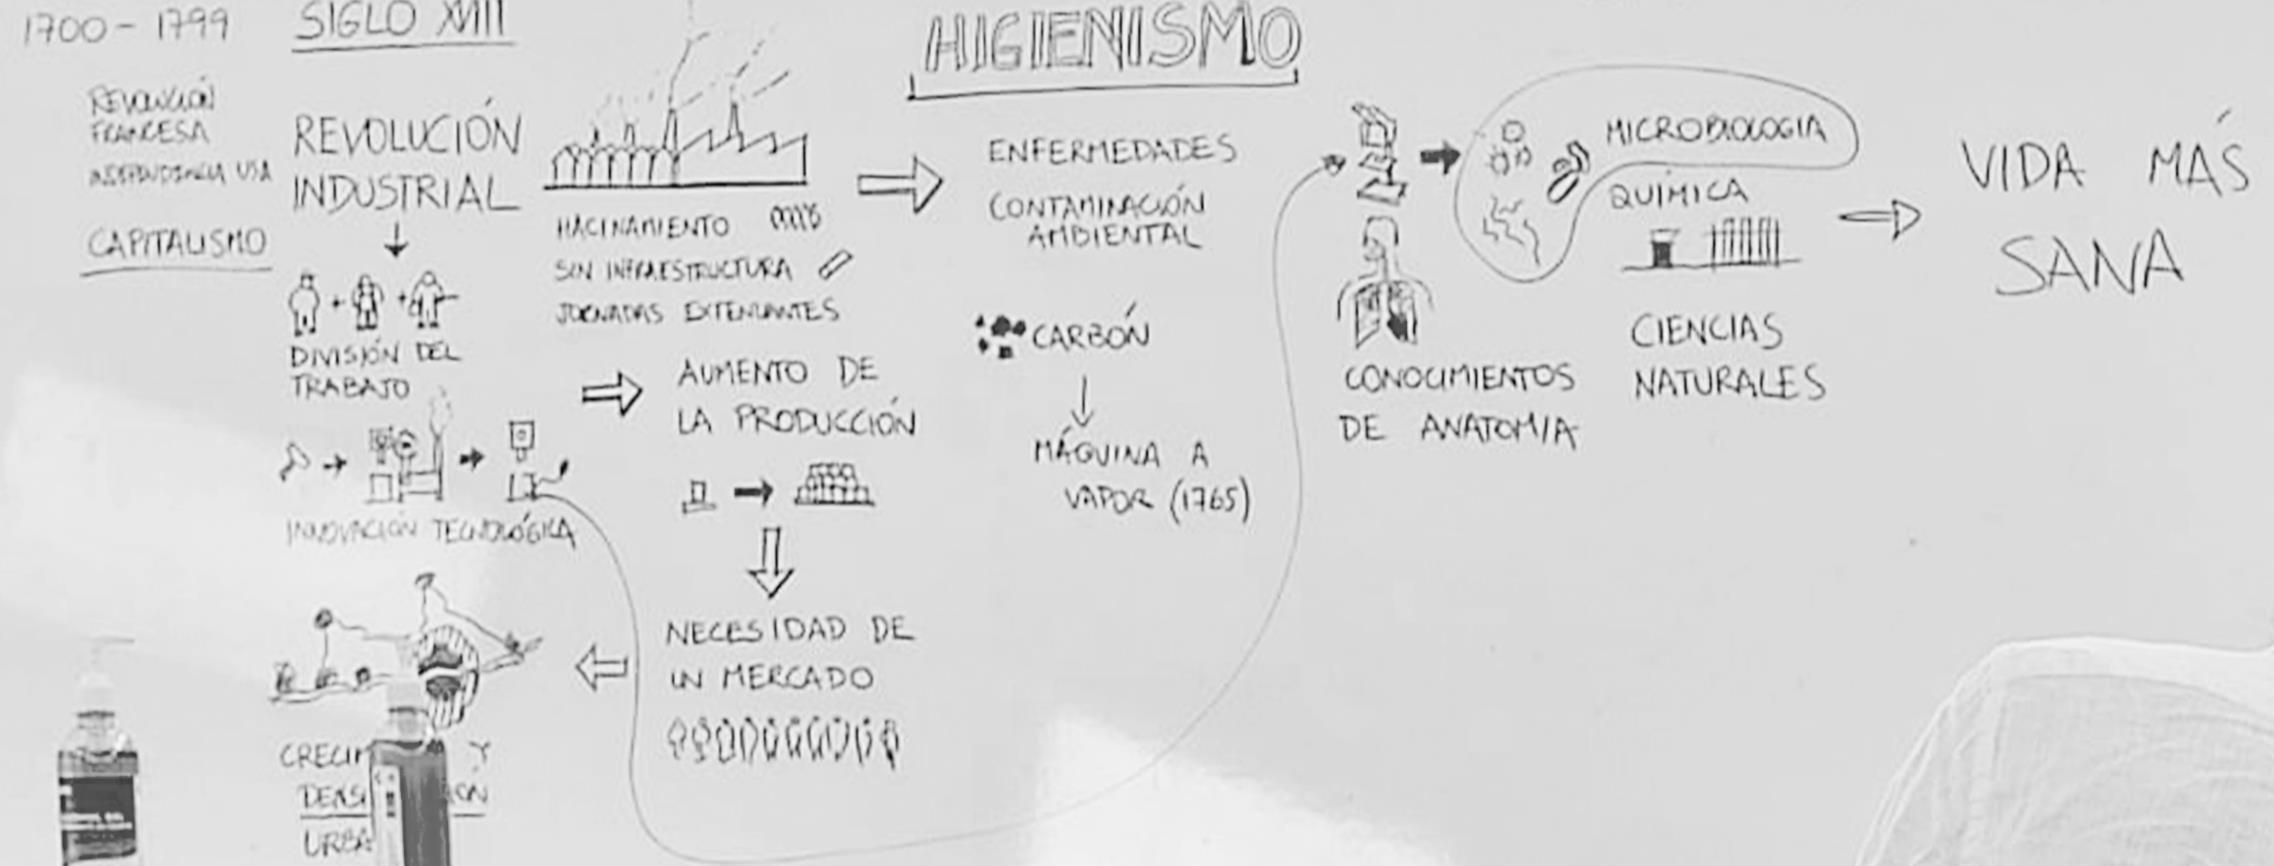 1700 - 1799
SIGLO XVIII
REVOLUCIÓN
FRANCESA
INDEPENDENCIA USA
CAPITALISMO
REVOLUCIÓN
INDUSTRIAL
DIVISIÓN DEL
TRABAJO
INNOVACIÓN TECNOLÓGICA
CRECIM Y
DENSI IÓN
URBA
HACINAMIENTO
SIN INFRAESTRUCTURA
JORNADAS EXTENUANTES
AUMENTO DE
LA PRODUCCIÓN
NECESIDAD DE
UN MERCADO
HIGIENISMO
ENFERMEDADES
CONTAMINACIÓN
AMBIENTAL
CARBÓN
MÁQUINA A
VAPOR (1765)
CONOCIMIENTOS
DE ANATOMIA
MICROBIOLOGIA
QUÍMICA
CIENCIAS
NATURALES
VIDA MÁS
SANA